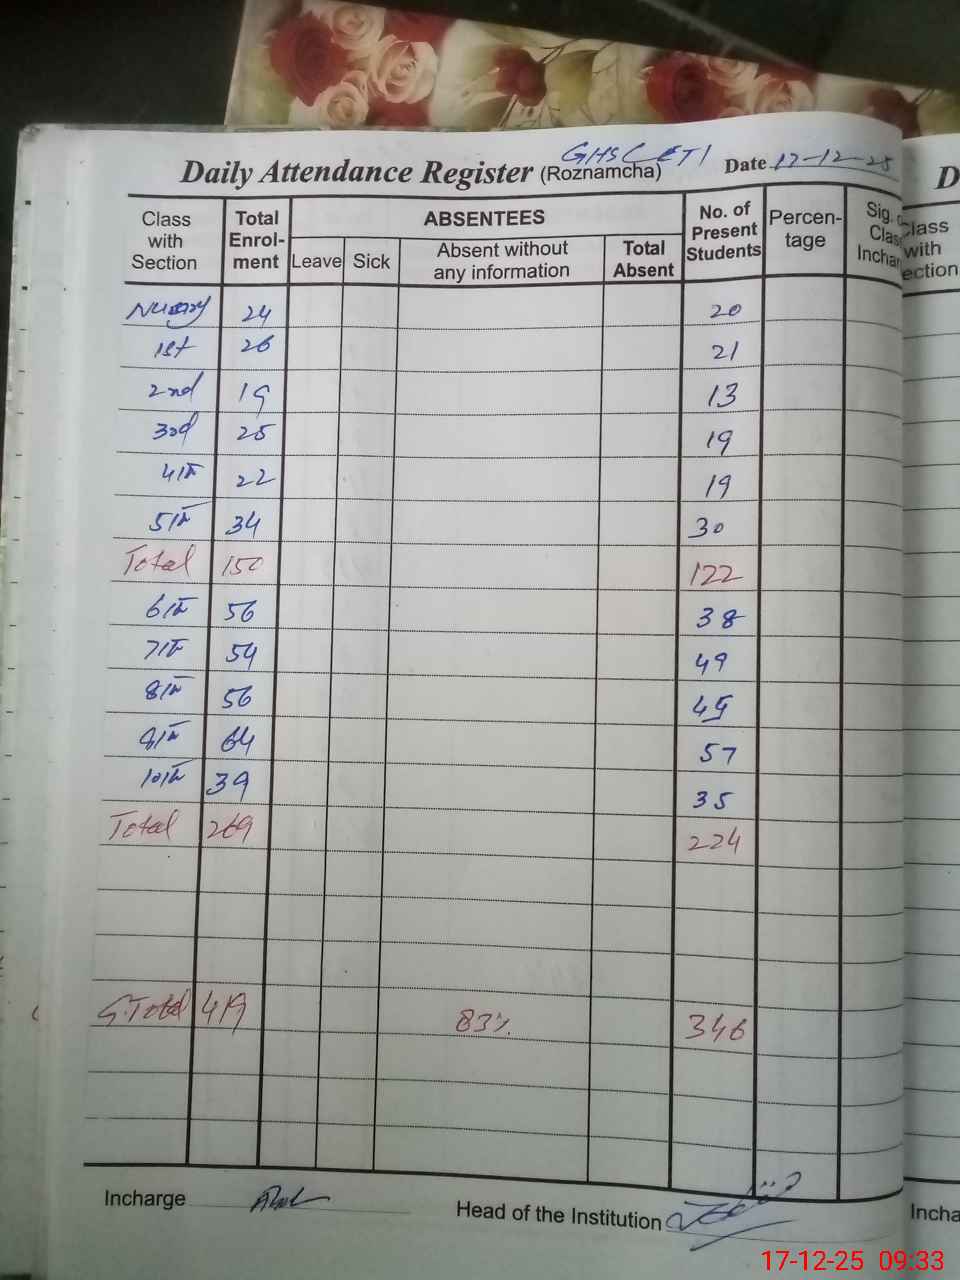 GHS
Daily Attendance Register (Roznamcha) Date 17-12-25
Class with Section Total Enrol-ment ABSENTEES No. of Present Students Percen-tage Sig.
Leave Sick Absent without any information Total Absent
Nursery 24 20
1st 26 21
2nd 19 13
3rd 25 19
4th 22 19
5th 34 30
Total 150 122
6th 56 38
7th 54 49
8th 56 45
9th 64 57
10th 39 35
Total 269 224
G.Total 419 83% 346
Incharge
Head of the Institution
D
Class
with
ection
Incha
17-12-25 09:33